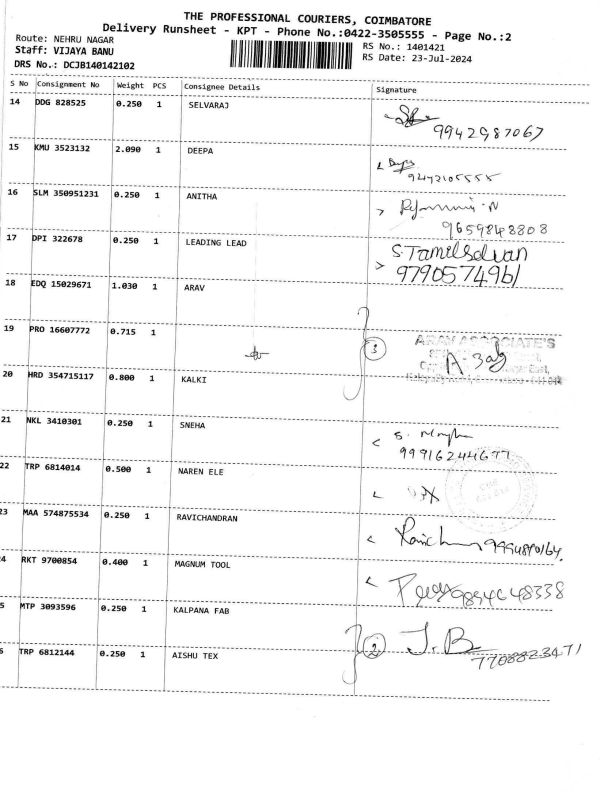 THE PROFESSIONAL COURIERS, COIMBATORE
Delivery Runsheet - KPT - Phone No.:0422-3505555 - Page No.:2
Route: NEHRU NAGAR
Staff: VIJAYA BANU
RS No.: 1401421
DRS No.: DCJB140142102
RS Date: 23-Jul-2024
S No Consignment No Weight PCS Consignee Details Signature
14 DDG 828525 0.250 1 SELVARAJ
9942987067
15 KMU 3523132 2.090 1 DEEPA
16 SLM 350951231 0.250 1 ANITHA
9659848808
17 DPI 322678 0.250 1 LEADING LEAD S.Tamilselvan
9790574961
18 EDQ 15029671 1.030 1 ARAV
19 PRO 16607772 0.715 1
3 ARAV ASSOCIATE'S
20 HRD 354715117 0.800 1 KALKI
21 NKL 3410301 0.250 1 SNEHA
22 TRP 6814014 0.500 1 NAREN ELE
23 MAA 574875534 0.250 1 RAVICHANDRAN
4 RKT 9700854 0.400 1 MAGNUM TOOL
5 MTP 3093596 0.250 1 KALPANA FAB
2 J.B
7708823471
6 TRP 6812144 0.250 1 AISHU TEX